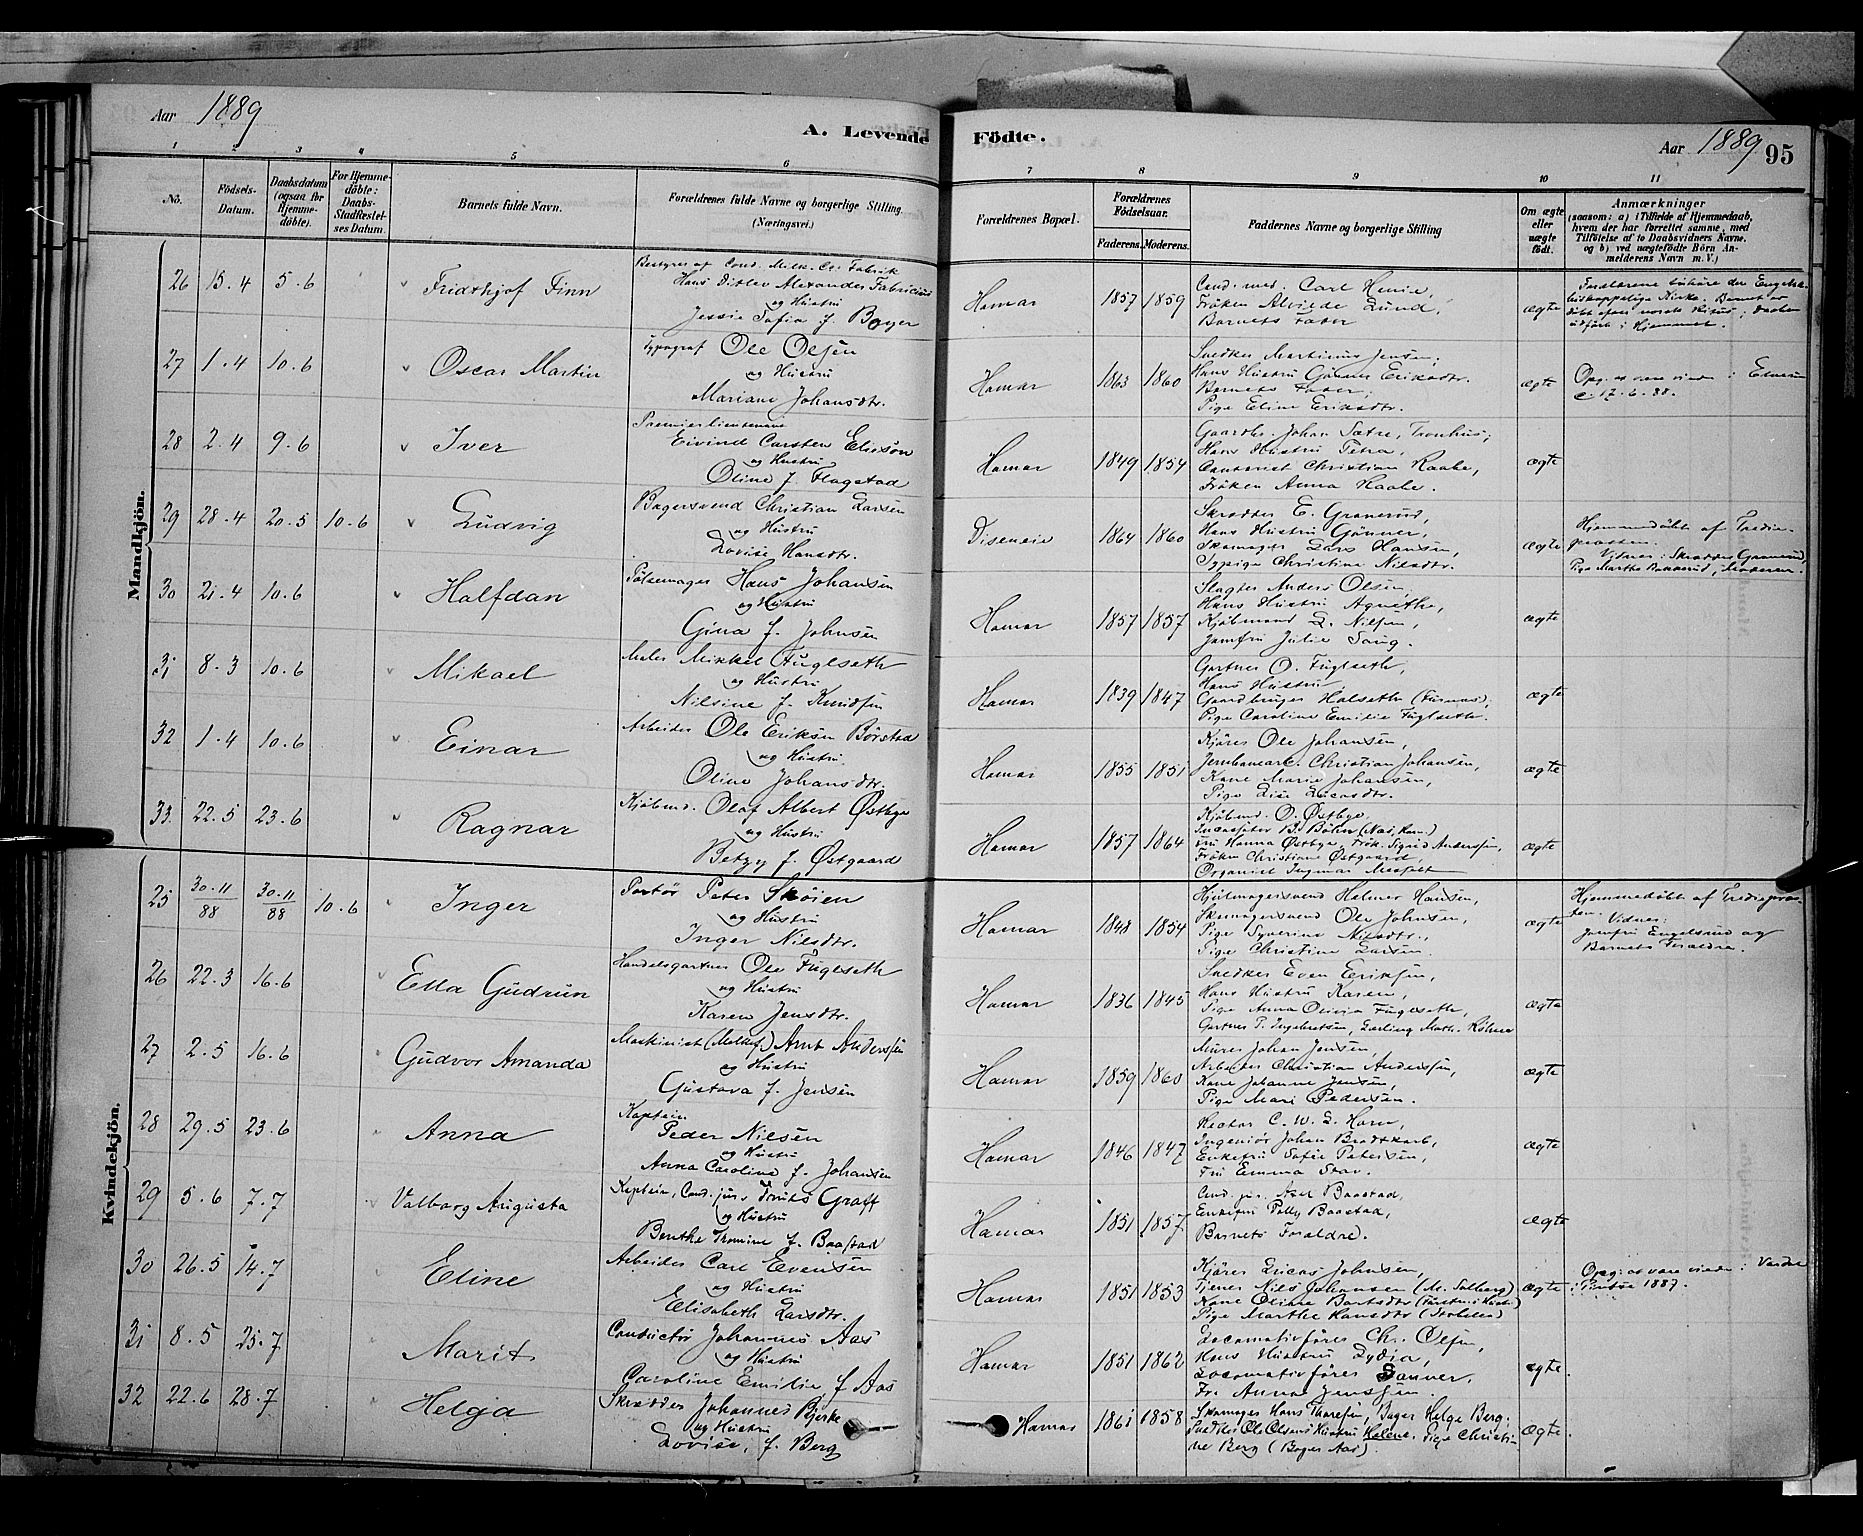 Aar 1889
A. Levende Födte.
Aar 1889 95
1 2 3 4 5 6 7 8 9 10 11
No.
Födsels-Datum.
Daabsdatum (ogsaa for Hjemme-döbte).
For Hjemme-döbte: Daabs-Stadfæstel-ses Datum.
Barnets fulde Navn.
Forældrenes fulde Navne og borgerlige Stilling. (Næringsvei.)
Forældrenes Bopæl.
Forældrenes Födselsaar.
Faderens. Moderens.
Faddernes Navne og borgerlige Stilling
Om ægte eller uægte födt.
Anmærkninger
(saasom: a) i Tilfælde af Hjemmedaab, hvem der har forrettet samme, med Tilföielse af to Daabsvidners Navne. og b) ved uægtefödte Börn An-melderens Navn m. V.)
Mandkjön.
26 15.4 5.6 Fridthjof Finn
Bestyrer af Cond. Milk. Co. Fabrik
Hans Ditlev Alexander Fabricius
og Hustru
Jessie Sofia f. Boyer
Hamar 1857 1859
Cand. med. Carl Henie,
Fröken Alvilde Lund,
Barnets Fader
ægte
Forældrene tilhöre den Engelsk-
biskoppelige Kirke. Barnet er
döbt efter norsk Ritus; Daaben
udfört i Hjemmet.
27 1.4 10.6 Oscar Martin
Typograf Ole Olsen
og Hustru
Mariane Johansdtr.
Hamar 1863 1860
Snedker Martinius Jensen,
Hans Hustru Gunnor Eriksdtr.
Barnets Fader,
Pige Eline Eriksdtr.
ægte
Opg. at være viede i
17.6.88.
28 2.4 9.6 Iver
Premierlieutenant
Eivind Carsten Elieson
og Hustru
Oline f. Flagstad
Hamar 1849 1854
Gaardbr. Johan Sætre, Tronhus;
Hans Hustru Petra,
Cantorist Christian Raabe,
Fröken Anna Raabe.
ægte
29 28.4 20.5 10.6 Ludvig
Bagersvend Christian Larsen
og Hustru
Lovise Hansdtr.
Diseneie 1864 1860
Skrædder E. Granerud,
Hans Hustru Gunner,
Skomager Lars Hansen,
Sypige Christine Nilsdtr.
ægte
Hjemmedöbt af Tredie-
præsten.
Vidner: Skrædder Granerud,
Pige Marthe Moderen.
30 21.4 10.6 Halfdan
Pölsemager Hans Johansen
og Hustru
Gina f. Johnsen
Hamar 1857 1857
Slagter Anders Olsen,
Hans Hustru Agnethe,
Kjöbmand L. Nilsen,
Jomfru Julie Saug.
ægte
31 8.3 10.6 Mikael
Maler Mikkel Fuglseth
og Hustru
Nilsine f. Knudsen
Hamar 1839 1847
Gartner O. Fuglseth,
Hans Hustru
Gaardbruger Halseth (Furnæs),
Pige Caroline Emilie Fuglseth.
ægte
32 1.4 10.6 Einar
Arbeider Ole Eriksen Börstad
og Hustru
Oline Johansdtr.
Hamar 1855 1851
Kjörer Ole Johansen,
Jernbanearb. Christian Johansen,
Kone Marie Johansen,
Pige Lise Lucasdtr.
ægte
33. 22.5 23.6 Ragnar
Kjöbmd. Olaf Albert Østbye
og Hustru
Betzy f. Østgaard
Hamar 1857 1864
Kjöbmd. O. Østbye
B. Böhn
Fru Hanna Østbye, Frök. Sigrid Andersen,
Fröken Christiane Østgaard,
Organist Ingmar
ægte
Kvindekjön.
25 30.11/88 30.11/88 10.6 Inger
Portör Peter Sköien
og Hustru
Inger Nilsdtr.
Hamar 1848 1854
Hjulmagersvend Halmer Hansen,
Skomagersvend Ole Johnsen,
Pige Syverine Nilsdtr.,
Pige Christine Larsen.
ægte
Hjemmedöbt af Trediepræs-
ten. Vidner:
Jomfru Engelsrud og
Barnets Forældre.
26 22.3 16.6 Ella Gudrun
Handelsgartner Ole Fuglseth
og Hustru
Karen Jensdtr.
Hamar 1836 1845
Snedker Even Eriksen,
Hans Hustru Karen,
Pige Anna Olivia Fuglseth,
Gartner P. Ingebretsen, Lærling Math.
ægte
27 2.5 16.6 Gudvor Amanda
Maskinist (Melkef.) Arnt Andersen
og Hustru
Gustava f. Jensen
Hamar 1859 1860
Murer Johan Jensen,
Arbeider Christian Andersen,
Kone Johanne Jensen,
Pige Mari Pedersen.
ægte
28 29.5 23.6 Anna
Kaptein
Peder Nilsen
og Hustru
Anna Caroline f. Johansen
Hamar 1846 1847
Rector C. W. L. Horn,
Ingeniör Johan Bredtkorb,
Enkefru Sofie Petersen,
Fru Emma Stav.
ægte
29 5.6 7.7 Valborg Augusta
Kaptein, Cand. jur. Truls Graff
og Hustru
Benthe Tromine f. Baastad
Hamar 1851 1857
Cand. jur. Axel Baastad,
Enkefru Polly Baastad,
Barnets Forældre).
ægte
30 26.5 14.7 Eline
Arbeider Carl Evensen
og Hustru
Elisabeth Larsdtr.
Hamar 1851 1853
Kjörer Lucas Johnsen,
Tjener Nils Johansen (M. Solberg)
Kone Oline
Pige Marthe Hansdtr
ægte
Opg. at være viede i Vardal
i Pintse 1887.
31 8.5 25.7 Marit
Conductör Johannes Aas
og Hustru
Caroline Emilie f. Aas
Hamar 1851 1862
Locomotivförer Chr. Olsen,
Hans Hustru Lydia,
Locomotivförer Sanner,
Fr. Anna Jenssen.
ægte.
32 22.6 28.7 Helga
Skrædder Johannes Bjerke
og Hustru
Lovise, f. Berg
Hamar 1861 1858
Skomager Hans Thoresen, Bager Helge Berg,
Snedker Ole Olsens Hustru Helene, Pige Christi-
ne Berg (Bager Aas).
ægte.